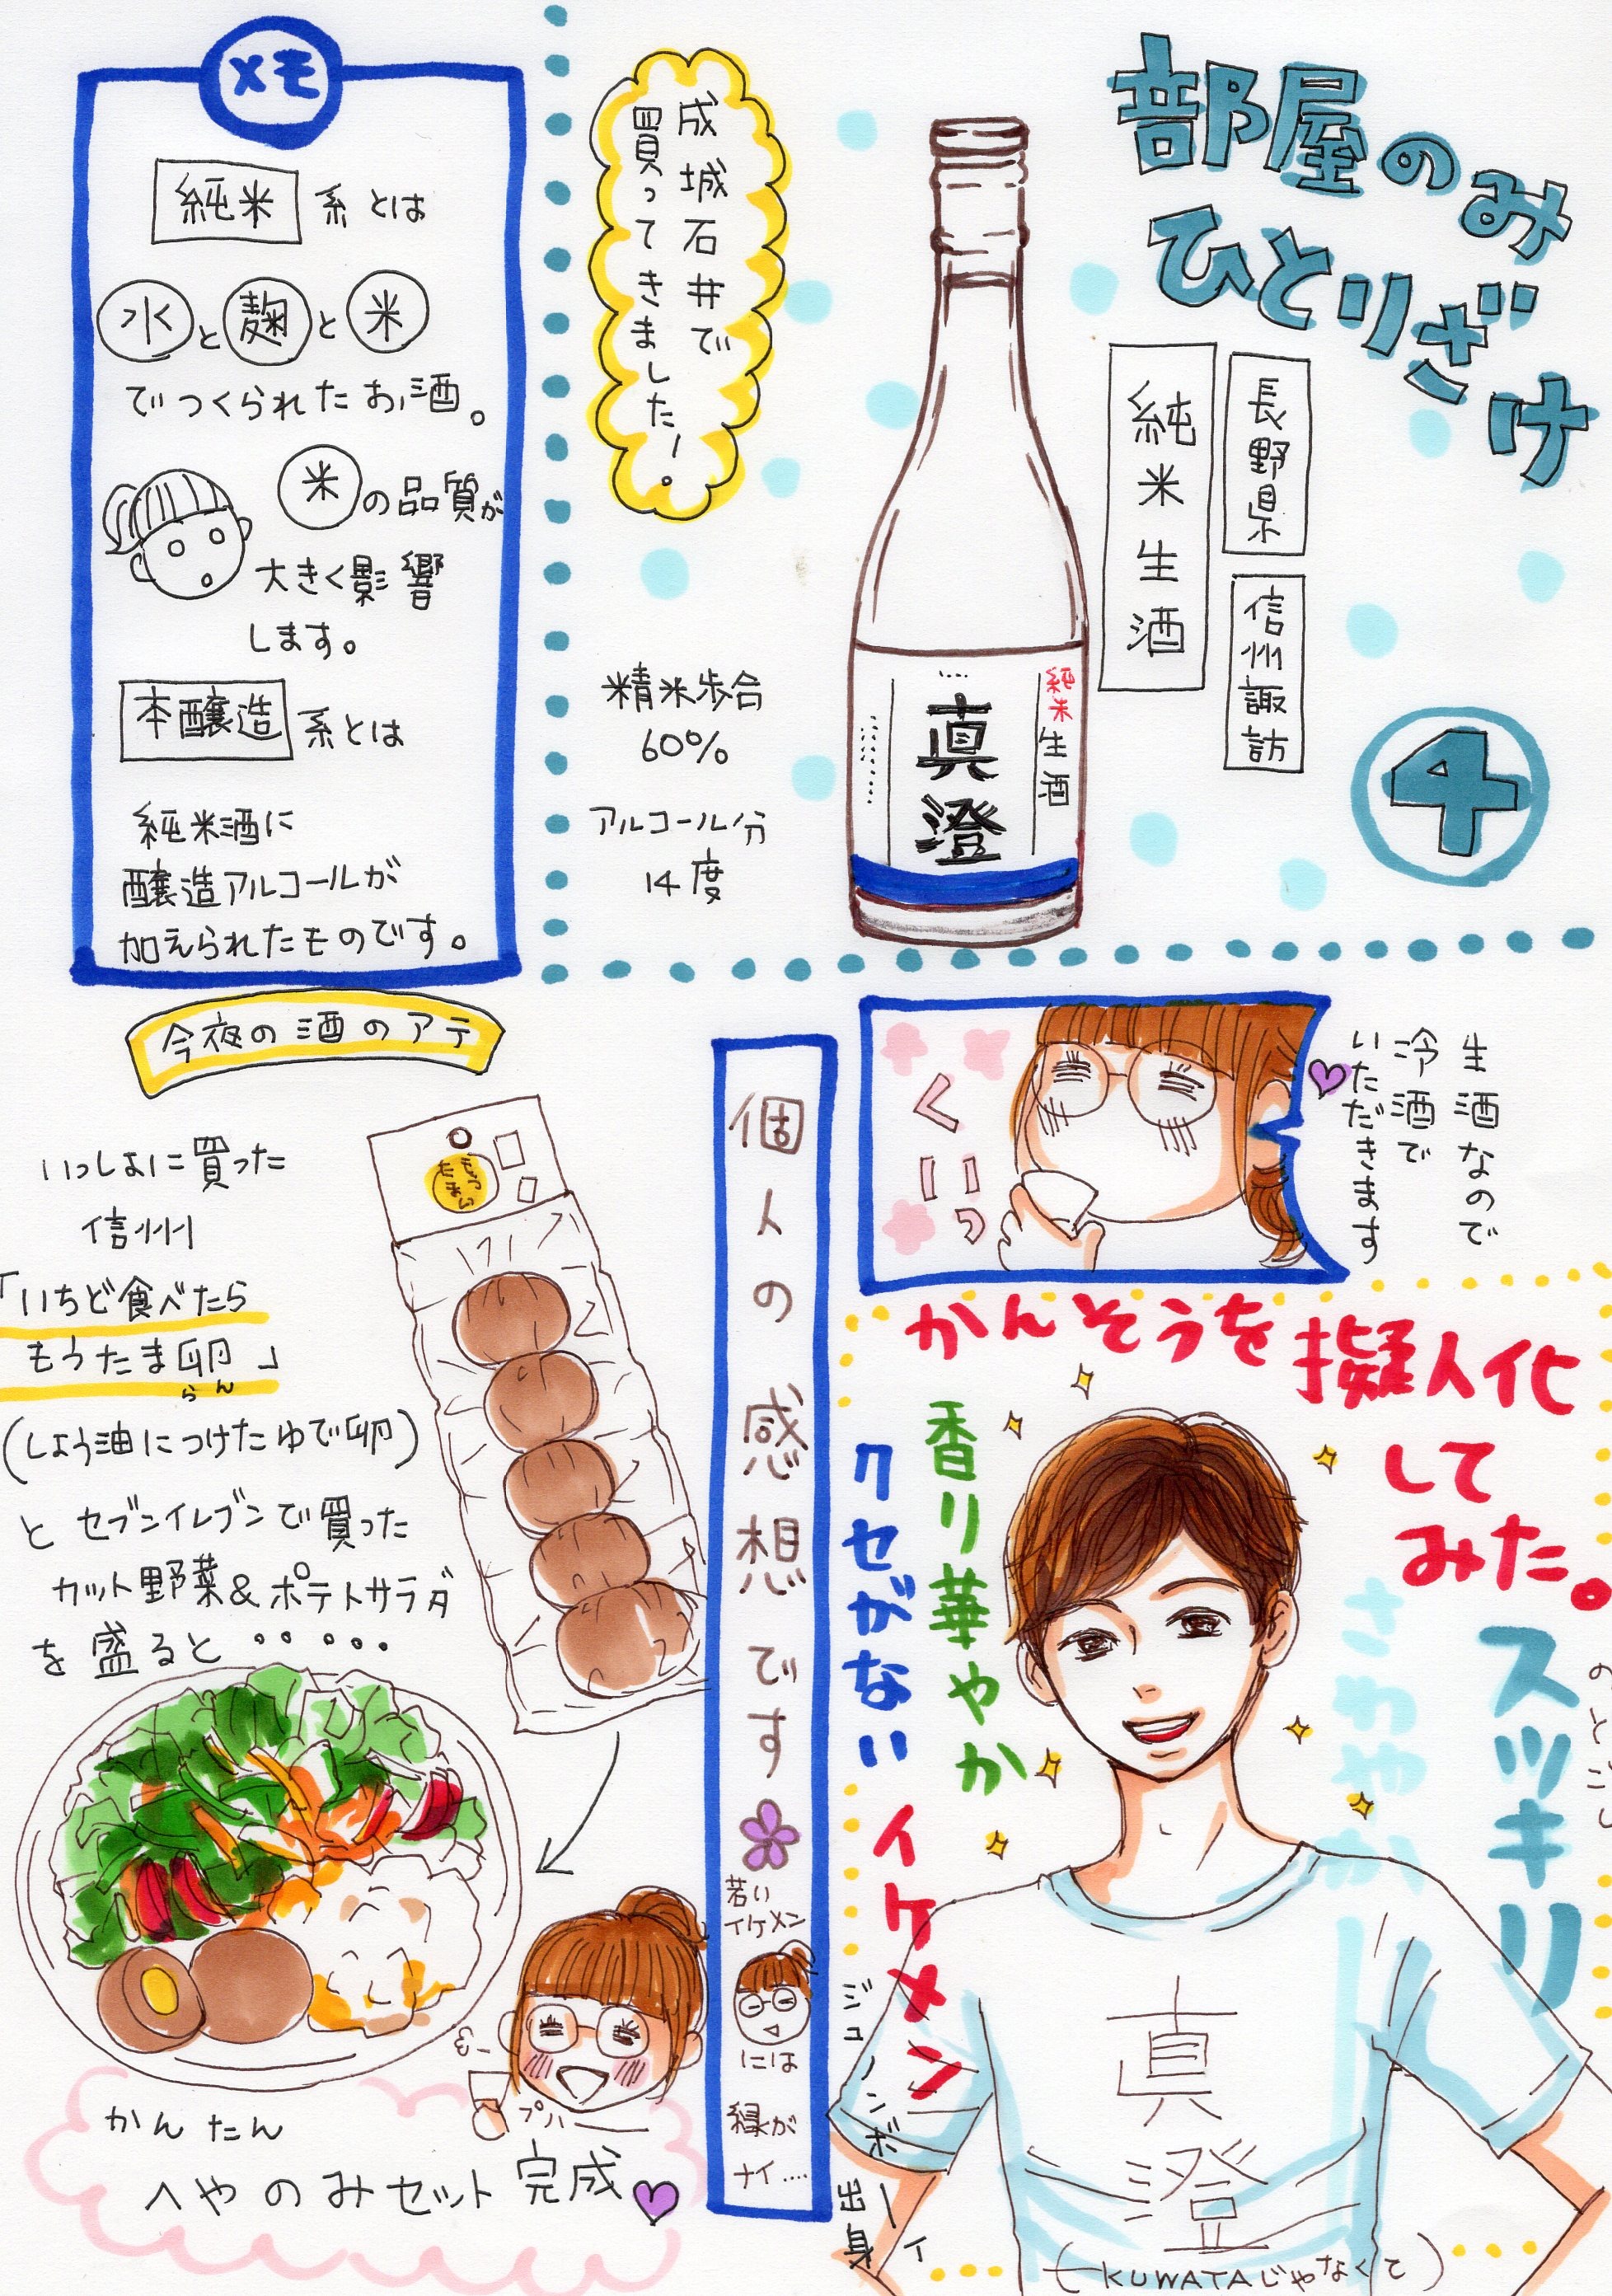 部屋のみ
ひとりざけ
④
長野県
信州諏訪
純米生酒
純米生酒
真澄
成城石井で
買ってきましたー。
精米歩合
60%
アルコール分
14度
メモ
純米系とは
水と麹と米
でつくられたお酒。
米の品質が
大きく影響
します。
本醸造系とは
純米酒に
醸造アルコールが
加えられたものです。
生酒なので
冷酒で
いただきます
くいっ
かんそうを擬人化
してみた。
スッキリ
さわやか
香り華やか
クセがない
イケメン
ジュノンボーイ
出身
真澄
(KUWATAじゃなくて)
個人の感想です
若い
イケメン
には
縁が
ナイ....
今夜の酒のアテ
いっしょに買った
信州
「いちど食べたら
もうたま卵」
らん
(しょう油につけたゆで卵)
と セブンイレブンで買った
カット野菜&ポテトサラダ
を盛ると・・・・・・
プハー
かんたん
へやのみセット完成